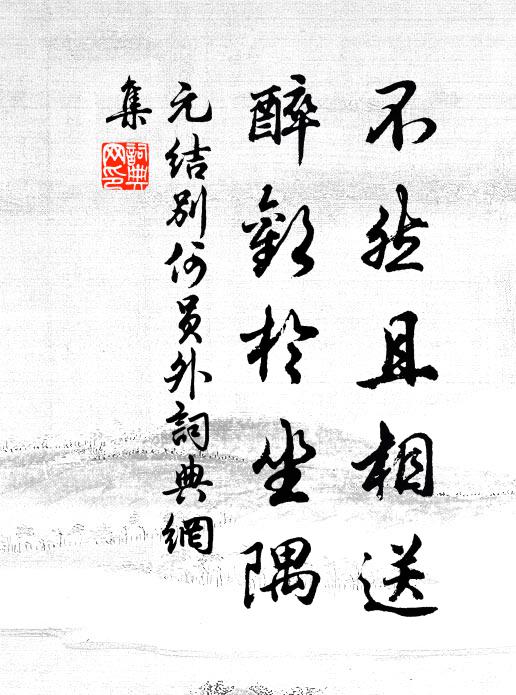 不然且相送
醉歡於坐隅
元结别何员外詞典網
集
詞典網印